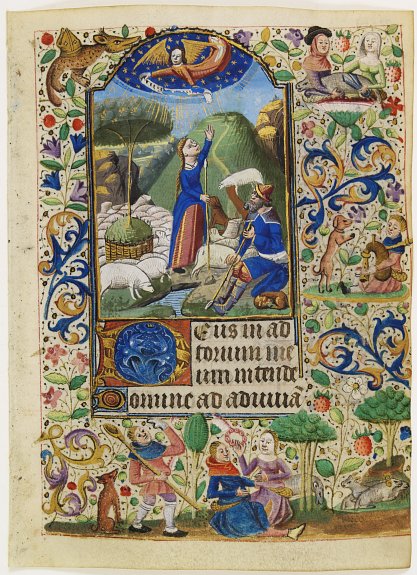 Deus in ad
torium me
um intende
Domine ad adiuuā